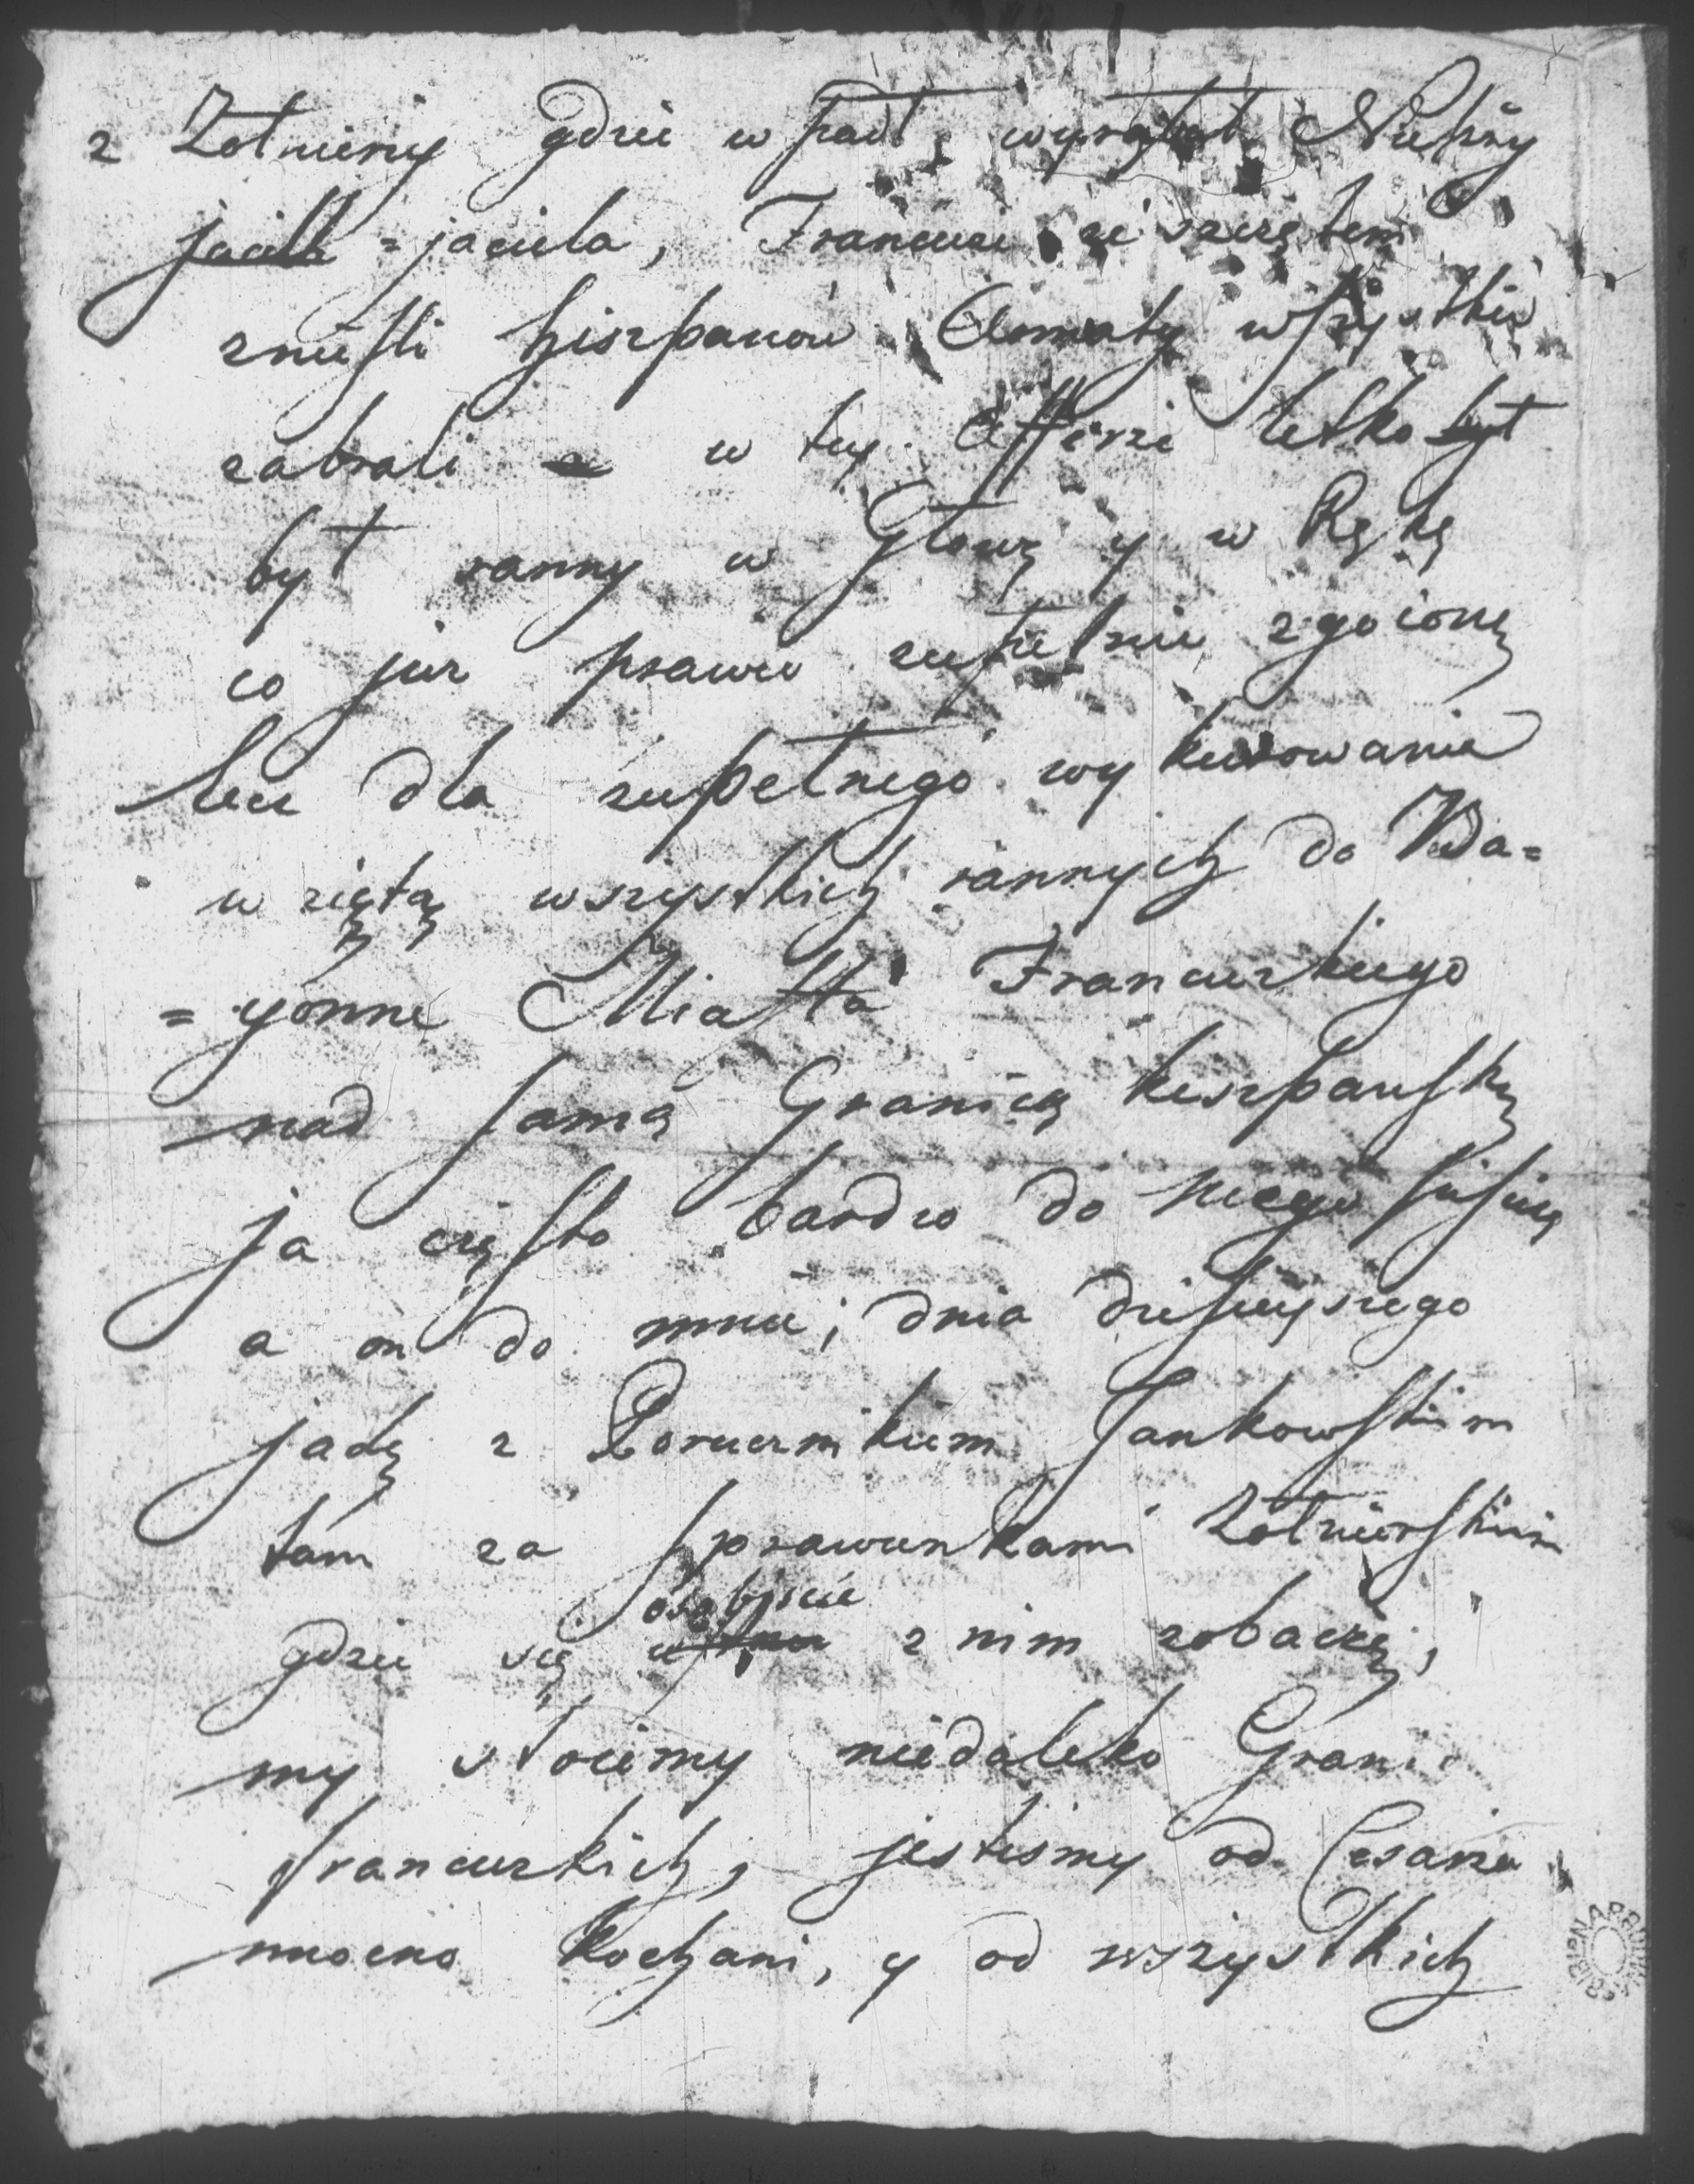 z Zołnierzy gdzie wpadł, wyrąbał Nieprzy
jaciela =jaciela, Francuzi ze szczętem
znieśli hiszpanów Armaty wszystkie
zabrali w tey Afferze letko był
był ranny w Głowę y w Rękę
co juz prawie zupełnie zgoione
lecz dla zupełnego wykurowania
wzięto wszystkich rannych do Ba=
=yonne Miasta Francuzkiego
nad samą Granicą hiszpanską
ja często bardzo do niego piszę
a on do mnie; dnia dzisieyszego
jadę z Porucznikiem Jankowskim
tam za sprawunkami Zołnierskim
osobiscie
gdzie się z nim zobaczę,
my stoiemy niedaleko Granic
francuzkich, jestesmy od Cesarza
mocno kochani, y od wszystkich